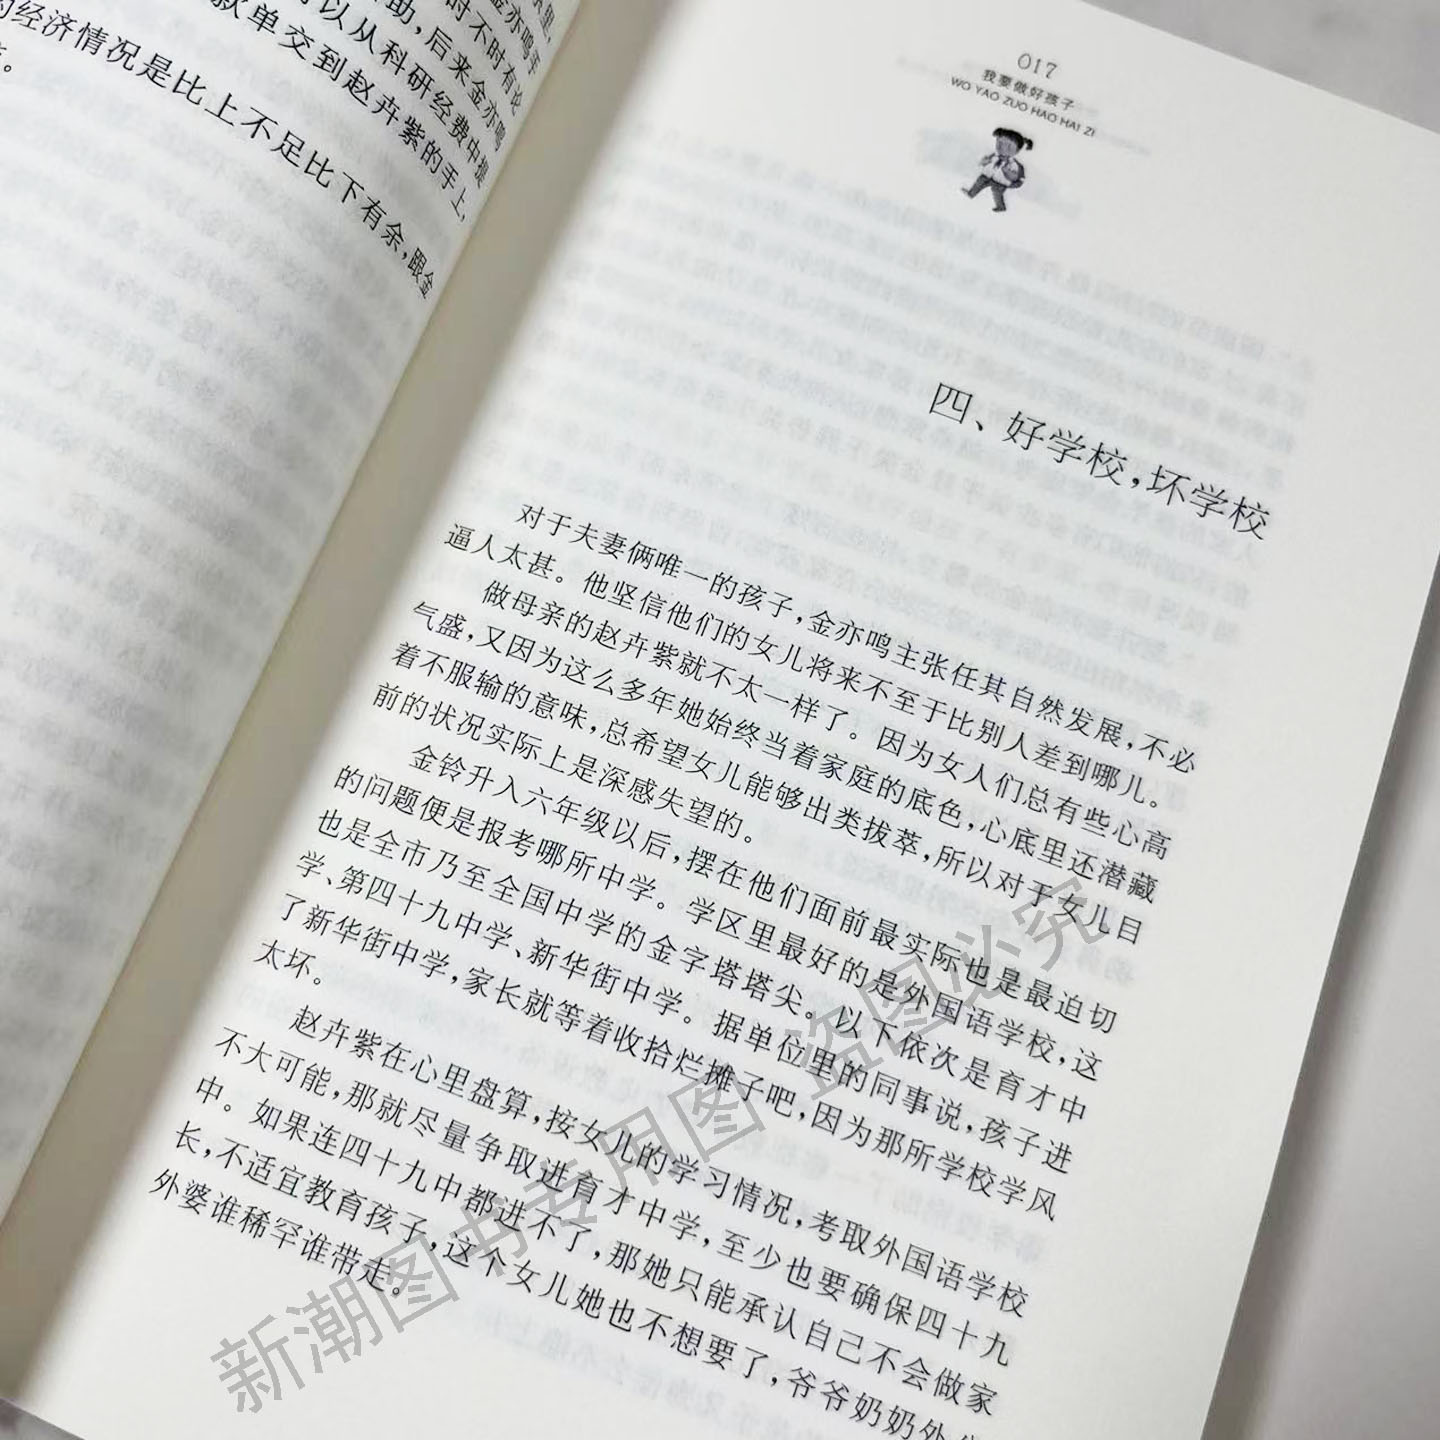 金亦鸣手
时不时有论
助，后来金亦鸣
可以从科研经费中提
款单交到赵卉紫的手上，
的经济情况是比上不足比下有余，跟金
。
017
我要做好孩子
WO YAO ZUO HAO HAI ZI
四、好学校，坏学校
对于夫妻俩唯一的孩子，金亦鸣主张任其自然发展，不必
逼人太甚。他坚信他们的女儿将来不至于比别人差到哪儿。
做母亲的赵卉紫就不太一样了。因为女人们总有些心高
气盛，又因为这么多年她始终当着家庭的底色，心底里还潜藏
着不服输的意味，总希望女儿能够出类拔萃，所以对于女儿目
前的状况实际上是深感失望的。
金铃升入六年级以后，摆在他们面前最实际也是最迫切
的问题便是报考哪所中学。学区里最好的是外国语学校，这
也是全市乃至全国中学的金字塔塔尖。以下依次是育才中
学、第四十九中学、新华街中学。据单位里的同事说，孩子进
了新华街中学，家长就等着收拾烂摊子吧，因为那所学校学风
太坏。
赵卉紫在心里盘算，按女儿的学习情况，考取外国语学校
不大可能，那就尽量争取进育才中学，至少也要确保四十九
中。如果连四十九中都进不了，那她只能承认自己不会做家
长，不适宜教育孩子，这个女儿她也不想要了，爷爷奶奶外
外婆谁稀罕谁带走。
新潮图书专用图 盗图必究